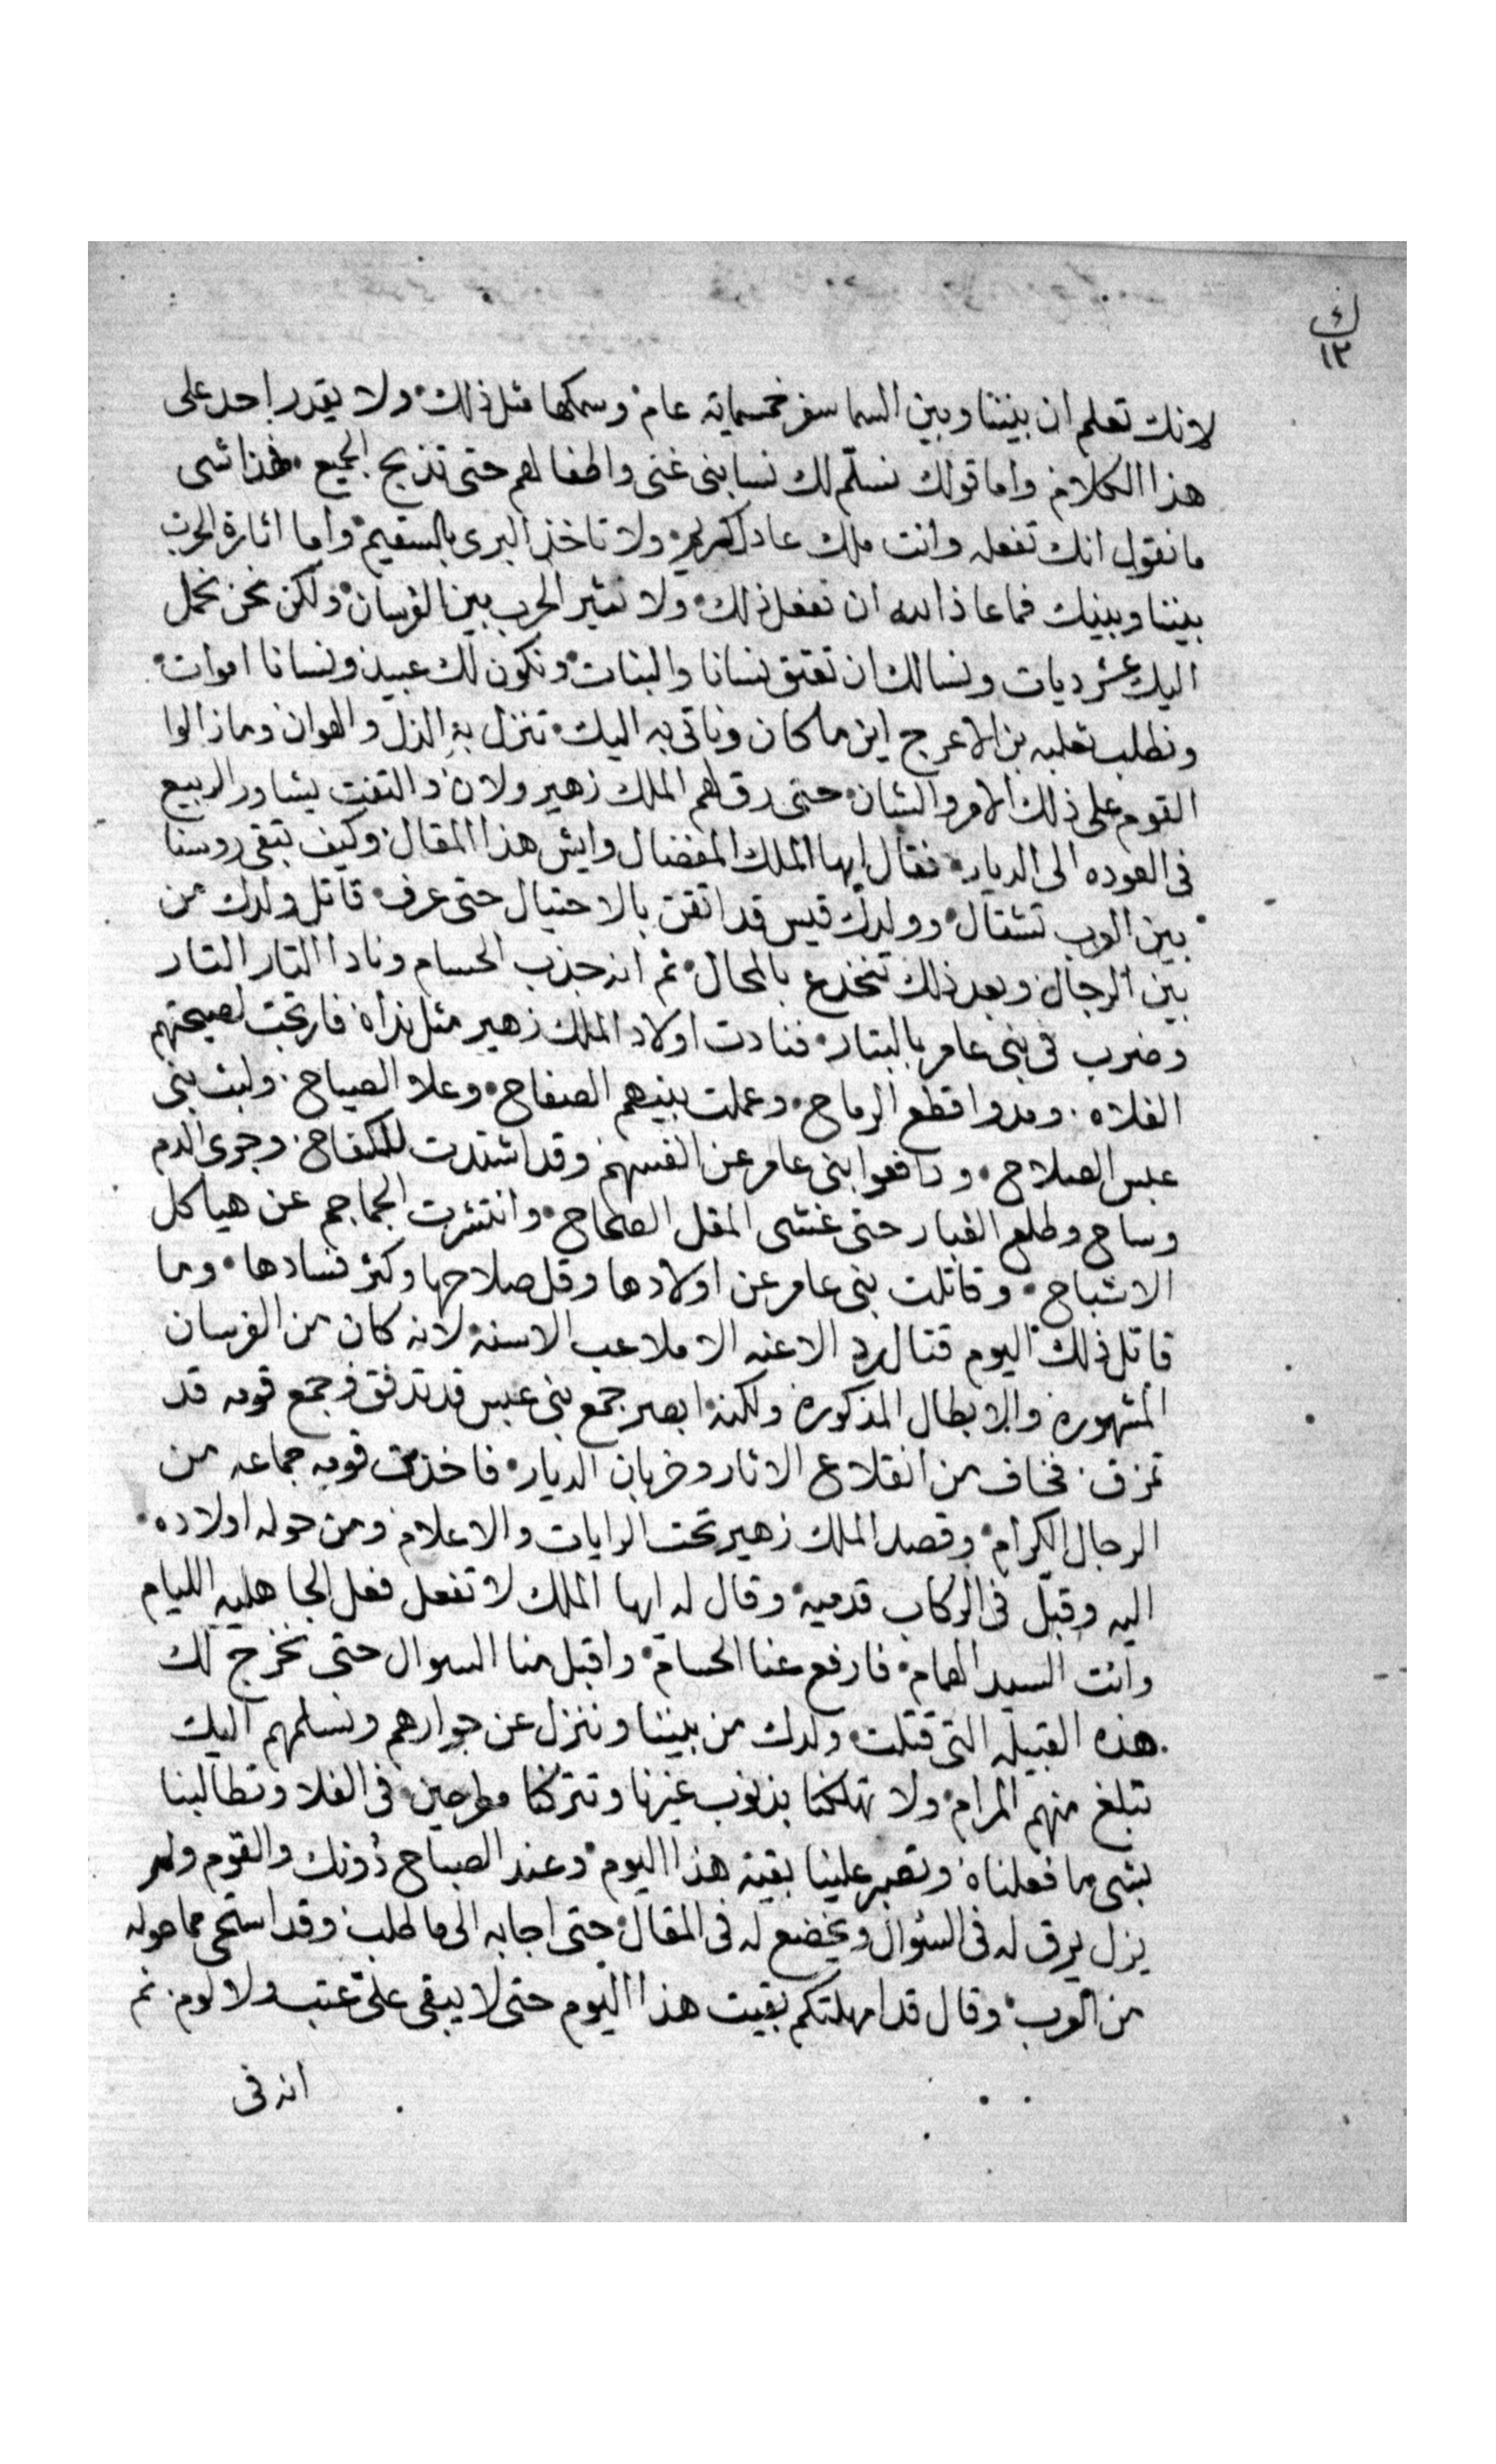 ك
١٢
لانك تعلم ان بيننا وبين السما سفر خمسماية عام وسمكها مثل ذلك ولا يقدر احد على
هذا الكلام واما قولك نسلم لك نسا بنى غنى واطفالهم حتى تذبح الجميع فهذا شى
ما نقول انك تفعله وانت ملك عادل كريم ولا تاخذ البرى بالسقيم واما اثارة الحرب
بيننا وبينك فماعاذ الله ان نفعل ذلك ولا نثير الحرب بين الفرسان ولكن نحن نحمل
اليك عشر ديات ونسالك ان تعتق نسانا والبنات ونكون لك عبيد ونسانا اموات
ونطلب ثعلبه بن الاعرج اين ما كان وناتى به اليك تنزل به الذل والهوان ومازالوا
القوم على ذلك الامر والشان حتى رق لهم الملك زهير ولان والتفت يشاور الربيع
فى العوده الى الديار فقال ايها الملك المفضال وايش هذا المقال وكيف تبقى روسنا
بين العرب تشتال وولدك قيس قد اتقن بالاحتيال حتى عرف قاتل ولدك من
بين الرجال وبعد ذلك تنخدع بالمحال ثم انه جذب الحسام ونادا التار التار
وضرب فى بنى عامر بالبتار فنادت اولاد الملك زهير مثل نداه فارتجت لصيحتهم
الفلاه ومدوا قطع الرماح وعملت بينهم الصفاح وعلا الصياح ولبث بنى
عبس الصلاح ودافعوا بنى عامر عن انفسهم وقد اشتدت للكفاح وجرى الدم
وساح وطلع الغبار حتى غشى المقل الصحاح وانتثرت الجماجم عن هياكل
الاشباح وقاتلت بنى عامر عن اولادها وقل صلاحها وكثر فسادها وما
قاتل ذلك اليوم قتال رد الاعنه الا ملاعب الاسنه لانه كان من الفرسان
المشهوره والابطال المذكوره ولكنه ابصر جمع بنى عبس قد تدفق وجمع قومه قد
تمزق فخاف من انقلاع الاثار وخربان الديار فاخذ من قومه جماعه من
الرجال الكرام وقصد الملك زهير تحت الرايات والاعلام ومن حوله اولاده
اليه وقبل فى الركاب قدميه وقال له ايها الملك لا تفعل فعل الجاهليه الليام
وانت السيد الهمام فارفع عنا الحسام واقبل منا السوال حتى نخرج لك
هذه القبيله التى قتلت ولدك من بيننا وننزل عن جوارهم ونسلمهم اليك
تبلغ منهم المرام ولا تهلكنا بذنوب غيرنا وتتركنا مطرحين فى الفلا وتطالبنا
بشى ما فعلناه وتصبر علينا بقية هذا اليوم وعند الصباح دونك والقوم ولم
يزل يرق له فى السؤال ويخضع له فى المقال حتى اجابه الى ما طلب وقد استحى مما حوله
من العرب وقال قد امهلتكم بقيت هذا اليوم حتى لا يبقى على عتب ولا لوم ثم
انه فى